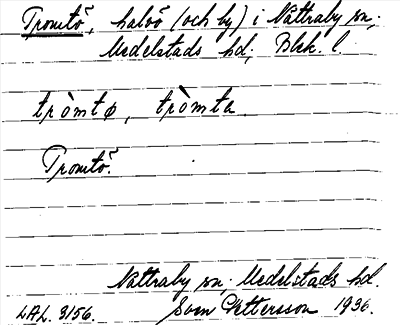 Tromtö, halvö (och by) i Nättraby sn;
Medelstads hd; Blek. l.
tròmtø, tròmta
Tromtö.
Nättraby sn; Medelstads hd.
LAL. 3156. Sven Pettersson 1936.